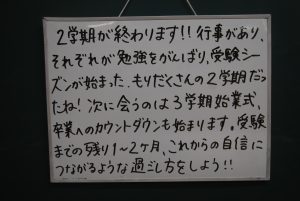 2学期が終わります!!行事があり、
それぞれが勉強をがんばり、受験シー
ズンが始まった、もりだくさんの2学期だっ
たね!次に会うのは3学期始業式、
卒業へのカウントダウンも始まります。受験
までの残り1~2ヶ月、これからの自信に
つながるような過ごし方をしよう!!